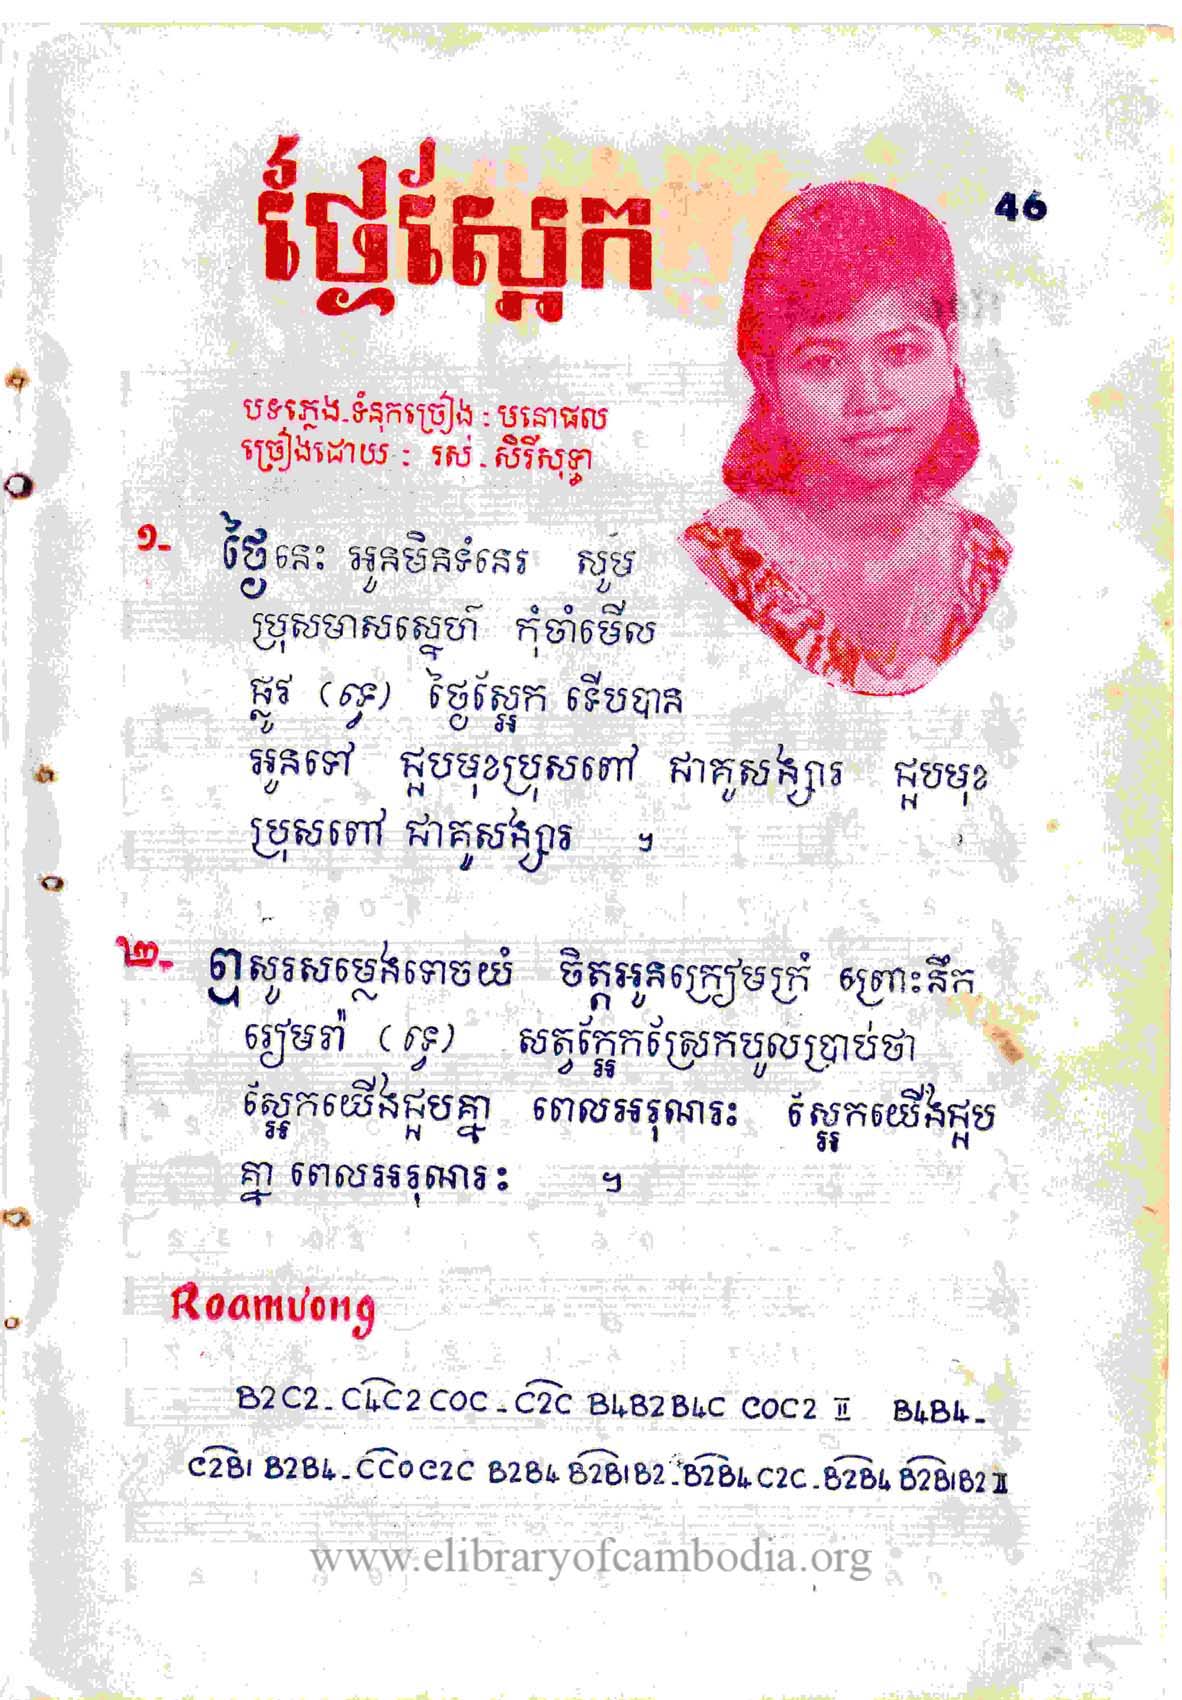 46
ថ្ងៃស្អែក
បទភ្លេង-ទំនុកច្រៀង : មនោផល
ច្រៀងដោយ : រស់-សិរីសុទ្ធា
១-
ថ្ងៃនេះ អូនមិនទំនេរ សូម
ប្រុសមាសស្នេហ៍ កុំចាំមើល
ផ្លូវ (ទ្វេ) ថ្ងៃស្អែក ទើបបាន
អូនទៅ ជួបមុខប្រុសពៅ ជាគូសង្សារ ជួបមុខ
ប្រុសពៅ ជាគូសង្សារ ។
២-
ឮសូរសម្លេងទោចយំ ចិត្តអូនក្រៀមក្រំ ព្រោះនឹក
រៀមរ៉ា (ទ្វេ) សត្វក្អែកស្រែកបូលប្រាប់ថា
ស្អែកយើងជួបគ្នា ពេលអរុណរះ ស្អែកយើងជួប
គ្នា ពេលអរុណរះ ។
Roamvong
B2C2-C4C2COC-C2C B4B2B4C COC2 II B4B4-
C2B1 B2B4-CCOC2C B2B4 B2B1B2-B2B4C2C-B2B4 B2B1B2 II
www.elibraryofcambodia.org